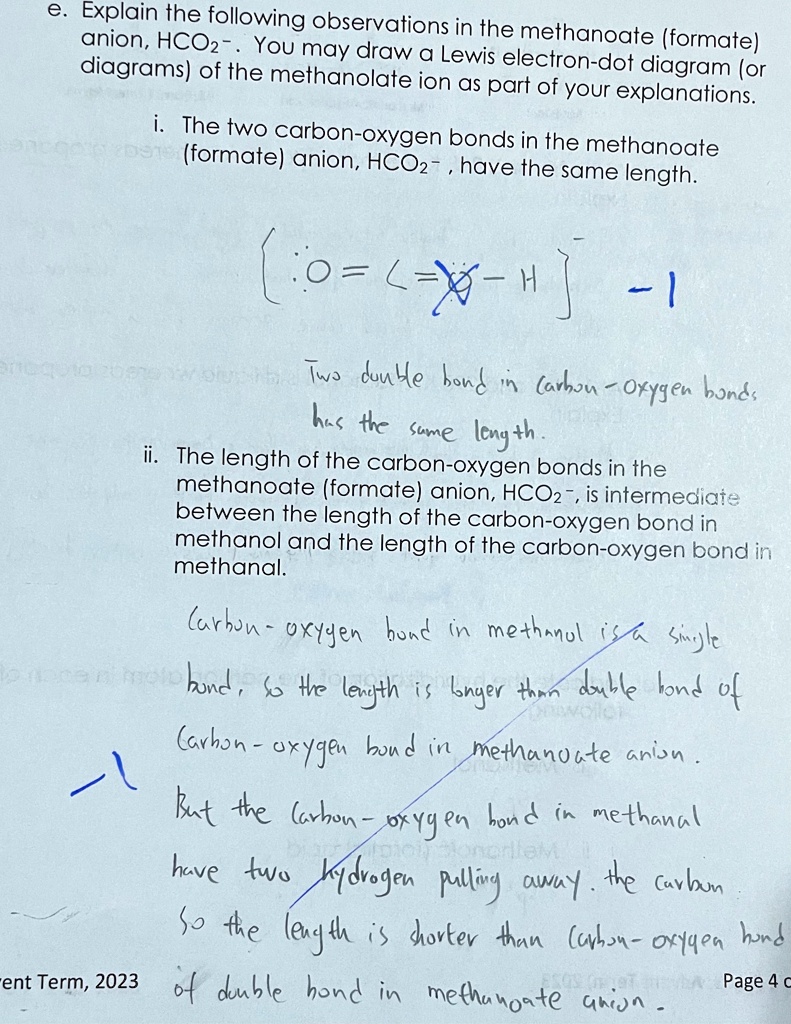 e. Explain the following observations in the methanoate (formate)
anion, HCO2-. You may draw a Lewis electron-dot diagram (or
diagrams) of the methanolate ion as part of your explanations.
i. The two carbon-oxygen bonds in the methanoate
(formate) anion, HCO2-, have the same length.
[:O=C=O-H]- -1
Two double bond in Carbon-Oxygen bonds
has the same length.
ii. The length of the carbon-oxygen bonds in the
methanoate (formate) anion, HCO2-, is intermediate
between the length of the carbon-oxygen bond in
methanol and the length of the carbon-oxygen bond in
methanal.
Carbon-oxygen bond in methanol is a single
bond, so the length is longer than double bond of
Carbon-oxygen bond in methanoate anion.
-1
But the Carbon-oxygen bond in methanal
have two hydrogen pulling away. the carbon
So the length is shorter than Carbon-oxygen bond
ent Term, 2023
of double bond in methanoate anion.
Page 4